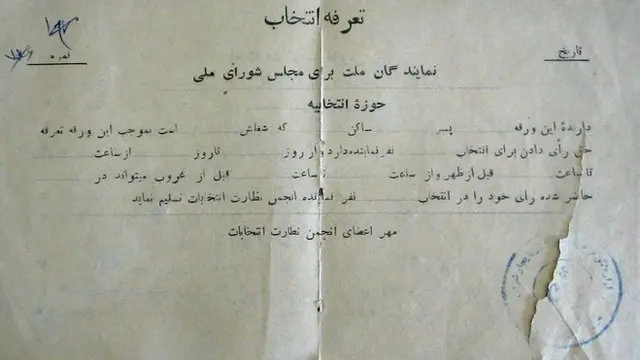 تعرفه انتخاب
تاریخ
نمره
نمایندگان ملت برای مجلس شورای ملی
حوزهٔ انتخابیه
دارندهٔ این ورقه پسر ساکن که شغلش است بموجب این ورقه تعرفه
حق رأی دادن برای انتخاب نفر نماینده دارد و از روز تا روز از ساعت
تا ساعت قبل از ظهر و از ساعت تا ساعت قبل از غروب میتواند در
حاضر شده رأی خود را در انتخاب نفر نماینده انجمن نظارت انتخابات تسلیم نماید
مهر اعضای انجمن نظارت انتخابات